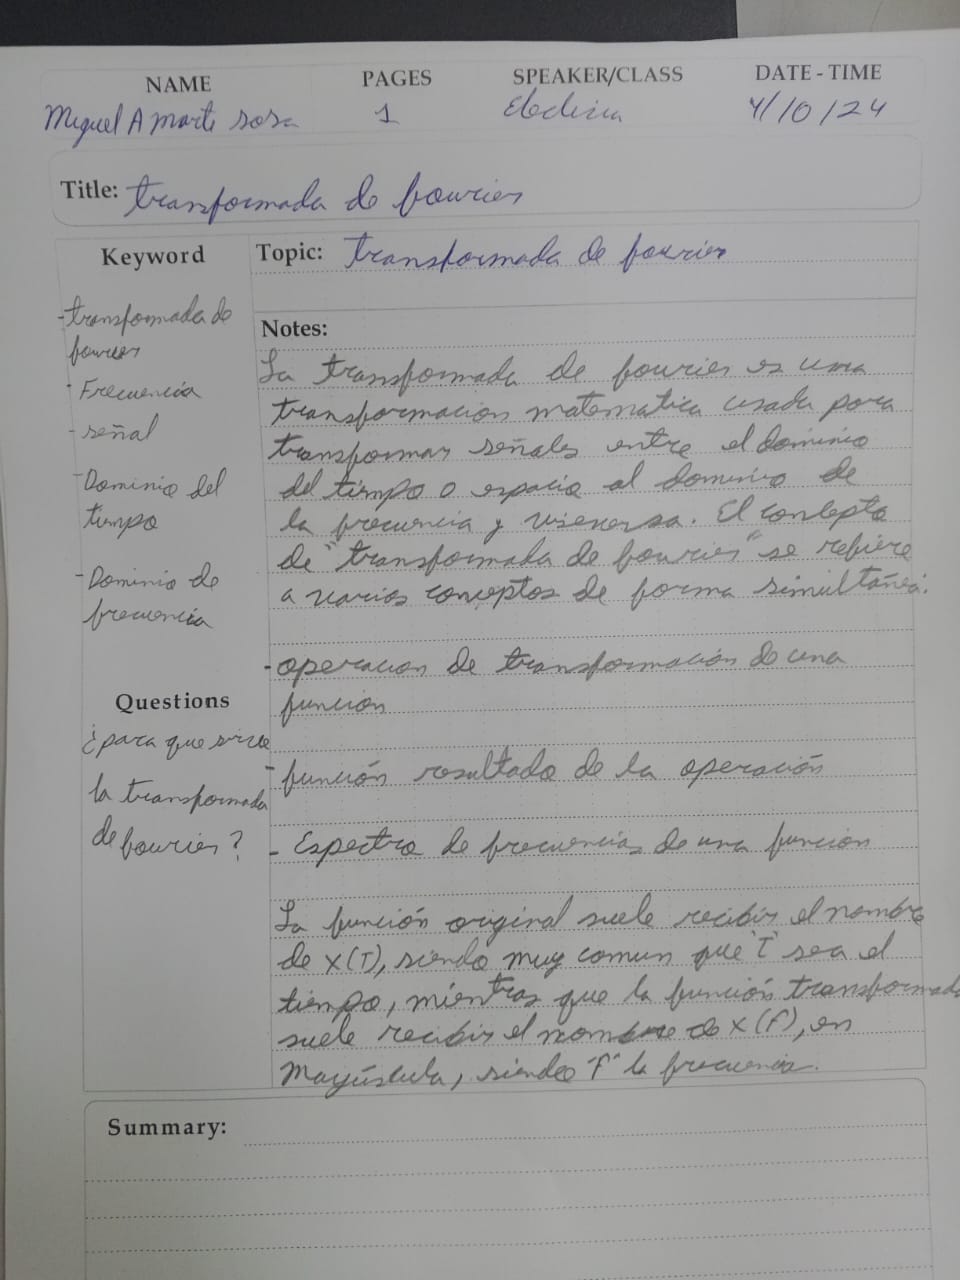 NAME PAGES SPEAKER/CLASS DATE - TIME
Miguel A Marte sosa 1 4/10/24
Title: transformada de fourier
Keyword
- transformada de
fourier
- Frecuencia
- señal
- Dominio del
tiempo
- Dominio de
frecuencia
Questions
¿para que sirve
la transformada
de fourier?
Topic: transformada de fourier
Notes:
La transformada de fourier es una
transformacion matematica usada para
transformar señales entre el dominio
del tiempo o espacio al dominio de
la frecuencia y viseversa. El concepto
de "transformada de fourier" se refiere
a varios conceptos de forma simultánea:
- operacion de transformación de una
función
- función resultado de la operación
- Espectro de frecuencias de una función
La función original suele recibir el nombre
de x(T), siendo muy comun que 'T' sea el
tiempo, mientras que la función transformada
suele recibir el nombre de X(f), en
Mayúscula, siendo "f" la frecuencia.
Summary: